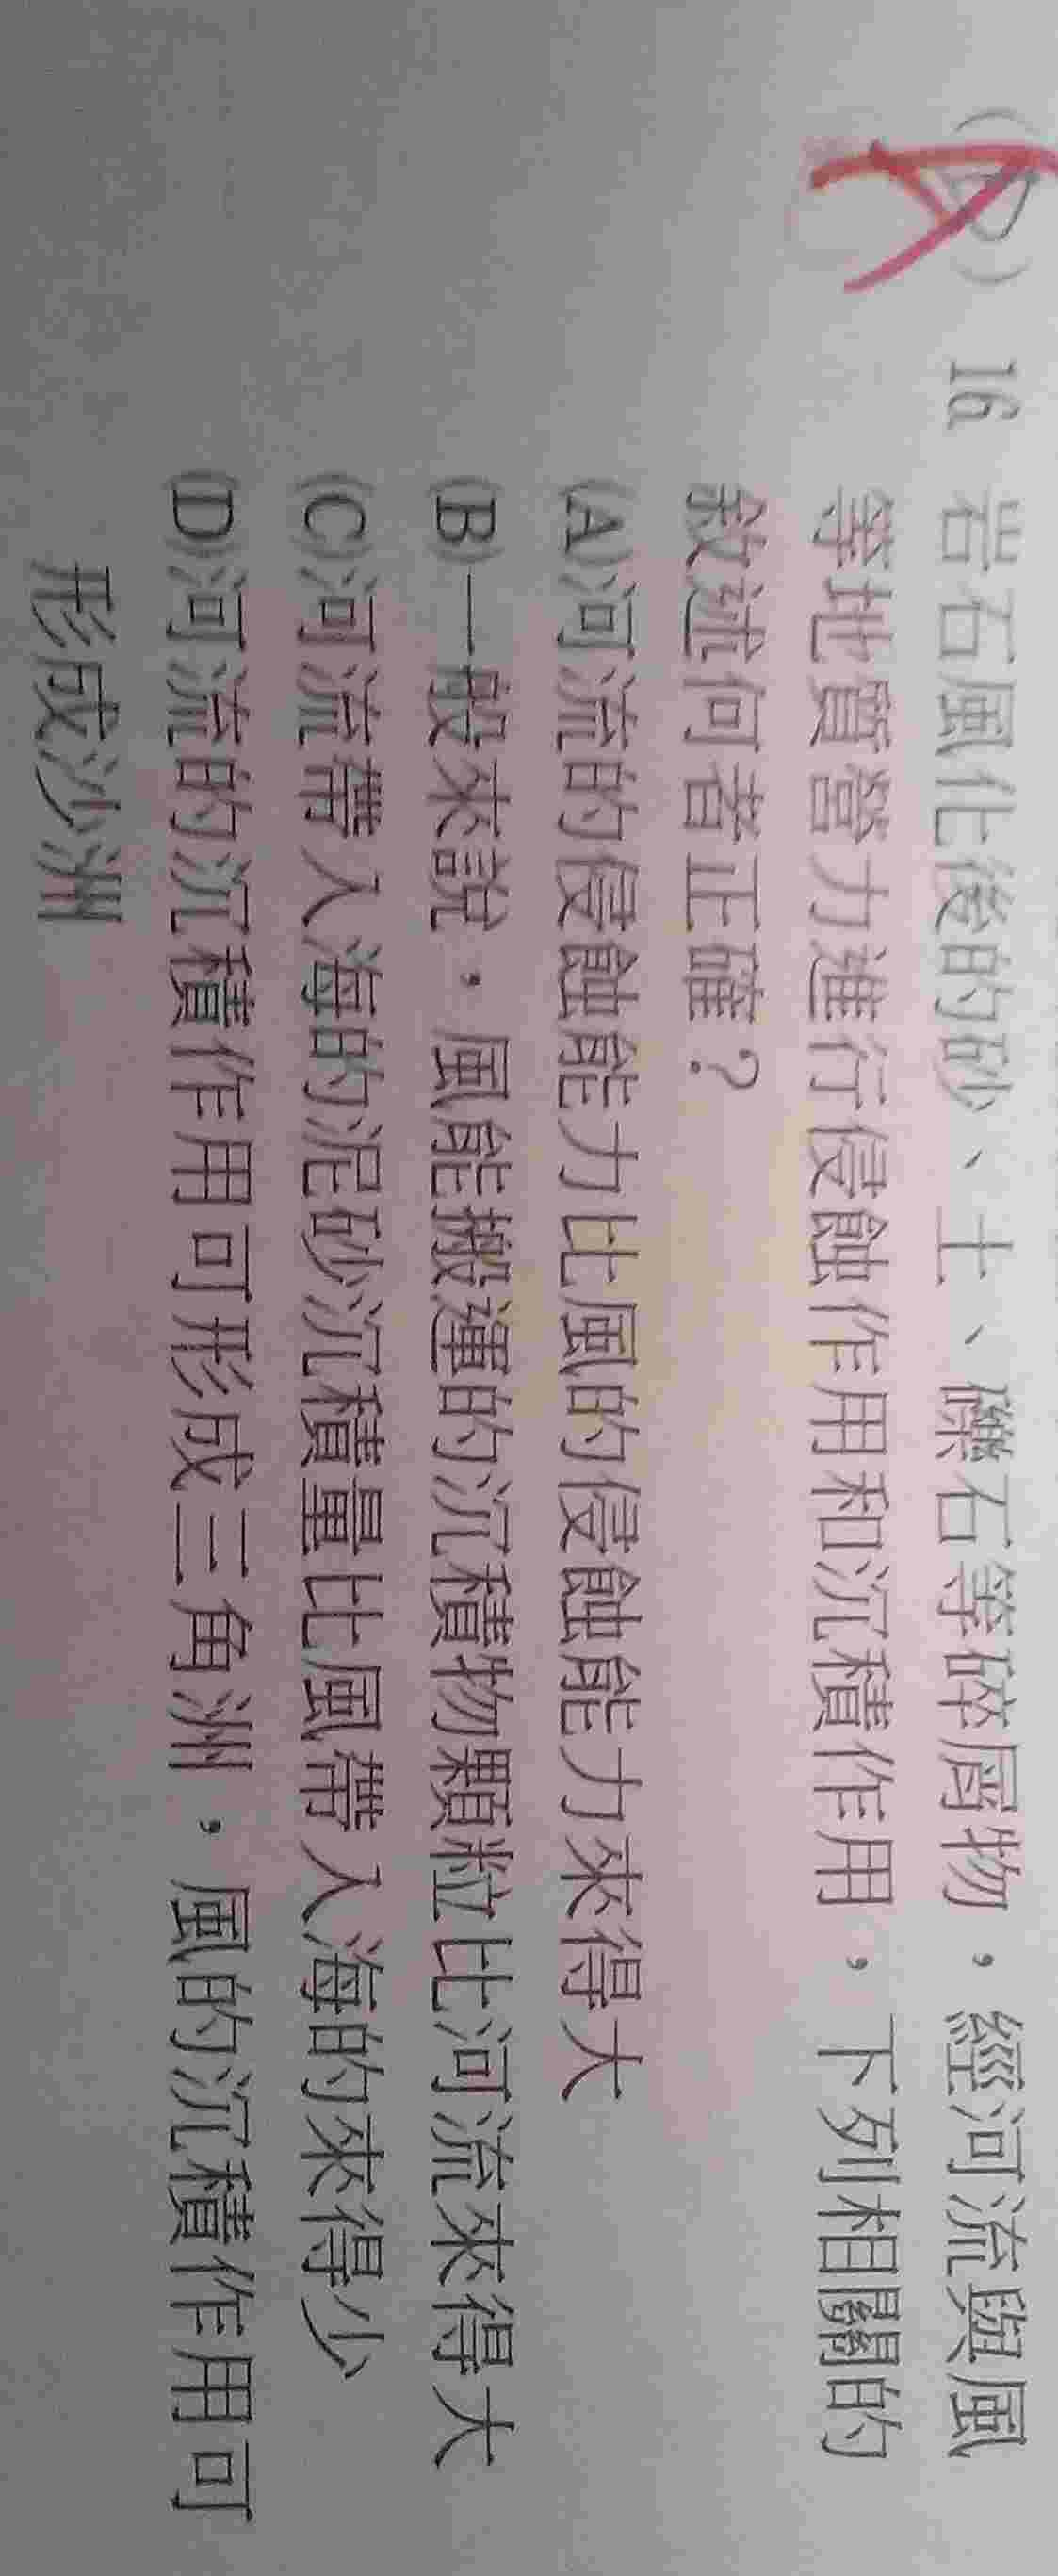 (D) 16 岩石風化後的砂、土、礫石等碎屑物，經河流與風
等地質營力進行侵蝕作用和沉積作用，下列相關的
敘述何者正確？
(A)河流的侵蝕能力比風的侵蝕能力來得大
(B)一般來說，風能搬運的沉積物顆粒比河流來得大
(C)河流帶入海的泥砂沉積量比風帶入海的來得少
(D)河流的沉積作用可形成三角洲，風的沉積作用可
形成沙洲
A